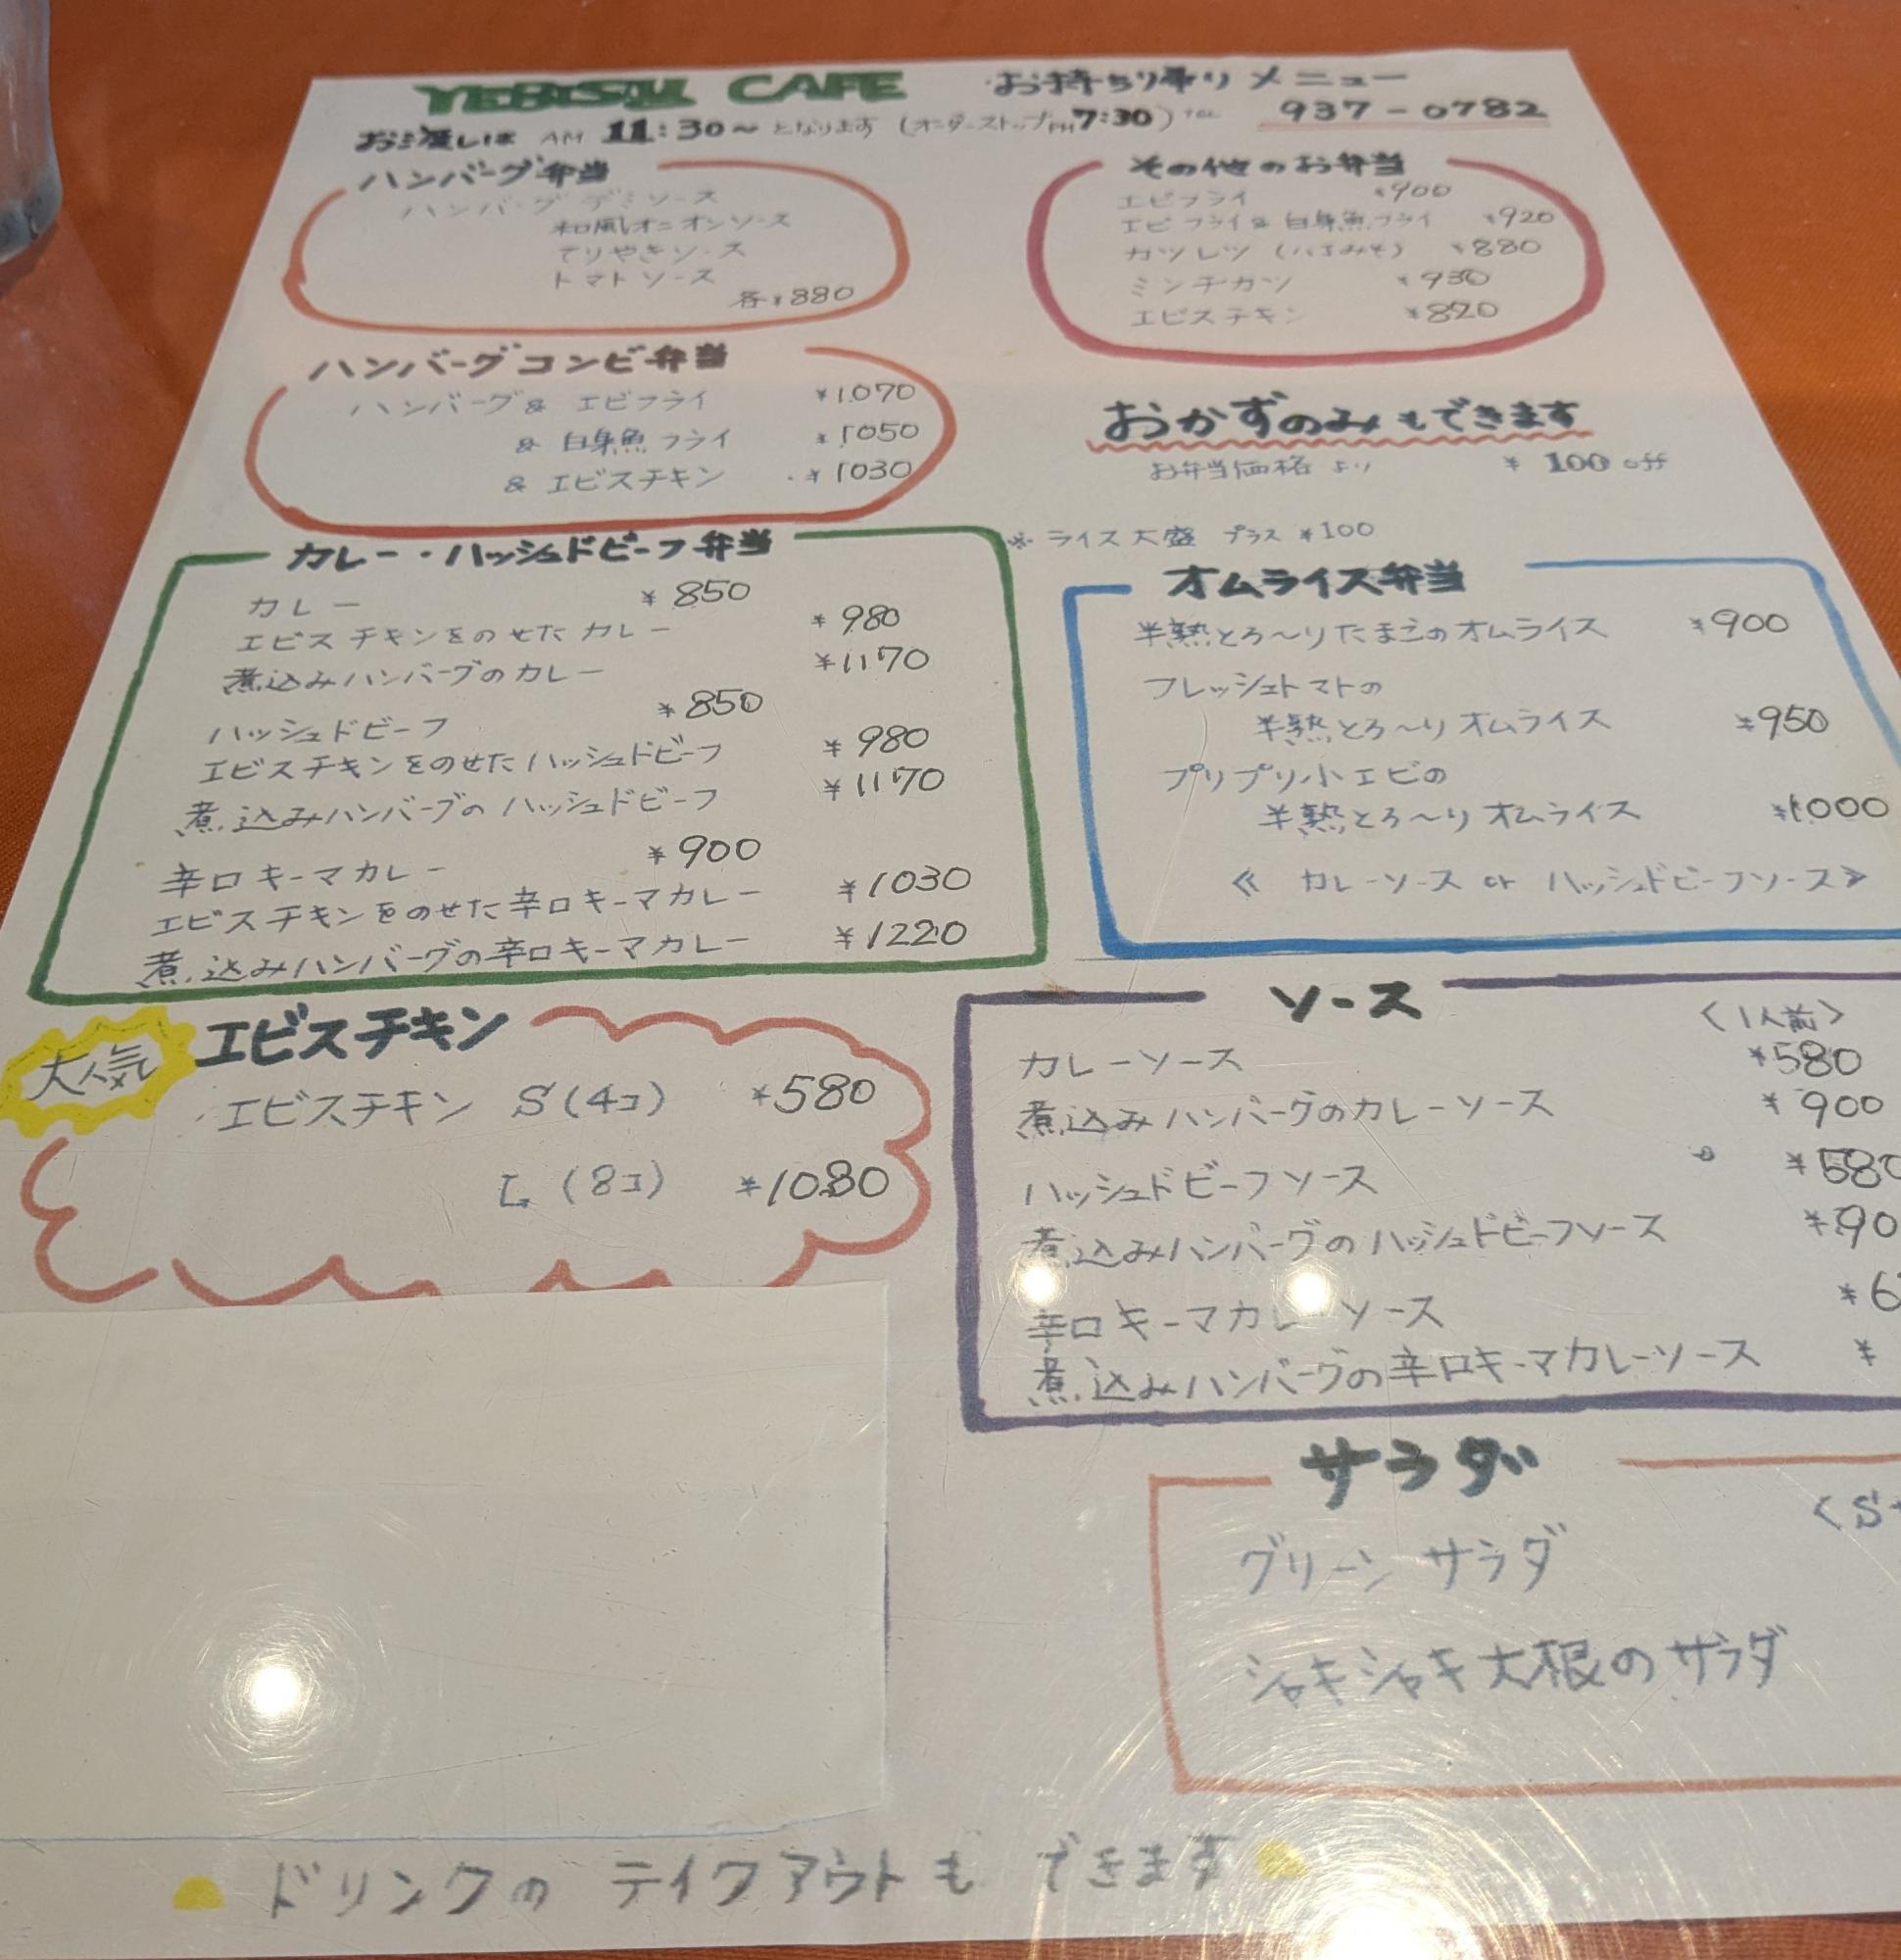 YEBISU CAFE お持ち帰りメニュー
お渡しは AM 11:30〜となります (オーダーストップPM7:30) TEL 937-0782
ハンバーグ弁当
ハンバーグ デミソース
和風オニオンソース
てりやきソース
トマトソース
各¥880
その他のお弁当
エビフライ ¥900
エビフライ& 白身魚フライ ¥920
カツレツ (ハチみそ) ¥880
ミンチカツ ¥930
エビスチキン ¥820
ハンバーグコンビ弁当
ハンバーグ& エビフライ ¥1070
& 白身魚フライ ¥1050
& エビスチキン ¥1030
おかずのみもできます
お弁当価格より ¥100 off
※ ライス大盛 プラス ¥100
カレー・ハッシュドビーフ弁当
カレー ¥850
エビスチキンをのせたカレー ¥980
煮込みハンバーグのカレー ¥1170
ハッシュドビーフ ¥850
エビスチキンをのせたハッシュドビーフ ¥980
煮込みハンバーグのハッシュドビーフ ¥1170
辛口キーマカレー ¥900
エビスチキンをのせた辛口キーマカレー ¥1030
煮込みハンバーグの辛口キーマカレー ¥1220
オムライス弁当
半熟とろ〜りたまごのオムライス ¥900
フレッシュトマトの
半熟とろ〜りオムライス ¥950
プリプリ小エビの
半熟とろ〜りオムライス ¥1000
≪ カレーソース or ハッシュドビーフソース≫
大人気 エビスチキン
エビスチキン S(4コ) ¥580
L (8コ) ¥1080
ソース
<1人前>
カレーソース ¥580
煮込みハンバーグのカレーソース ¥900
ハッシュドビーフソース ¥580
煮込みハンバーグのハッシュドビーフソース ¥90
辛口キーマカレーソース ¥6
煮込みハンバーグの辛口キーマカレーソース ¥
サラダ
<S
グリーンサラダ
シャキシャキ大根のサラダ
ドリンクの テイクアウトも できます